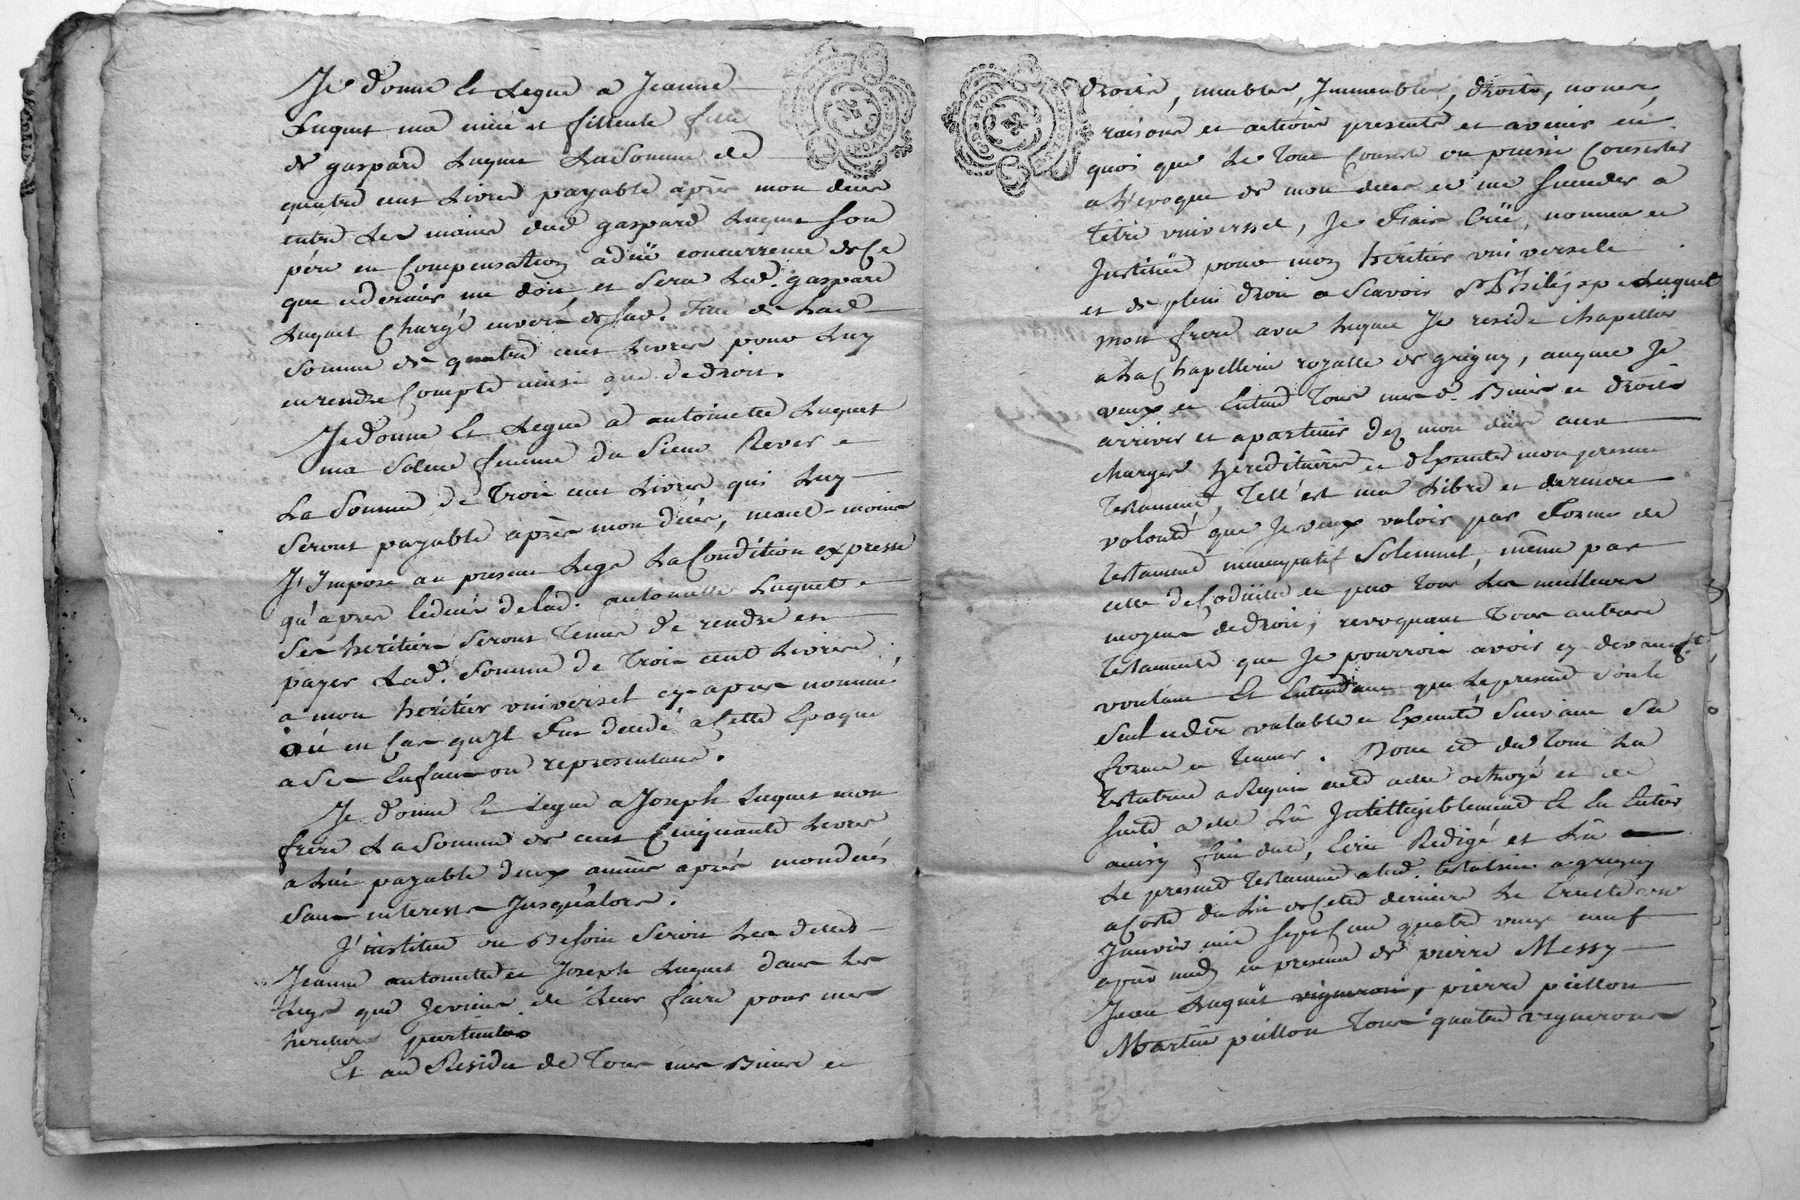 Je donne et Legue a Jeanne
Luquet ma niéce et filleule fille
de gaspard Luquet La Somme de
quatre cent Livres payable après mon deces
entre Les mains dud gaspard Luquet son
pére en Compensation a düe concurrence de Ce
que ce dernier me doit et Sera Led. gaspard
Luquet Chargé envers de Lad.
Somme de quatre cent Livres pour Luy
en rendre Compte ainsi que de droit.
Je donne et Legue a antoinette Luquet
ma Soeur femme du Sieur Rever
La Somme de Trois cent Livres qui Luy
Seront payable après mon décés, neant-moins
J'impose au present Legs La Condition expresse
qu'apres le decés de lad. antoinette Luquet
Ses heritiers Seront Tenus de rendre et
payer Lad. Somme de Trois cent Livres
a mon heritier universel cy-apres nommé
où en Cas qu'il fut decedé a Cette Epoque
a Ses Enfans ou representans.
Je donne et Legue a Joseph Luquet mon
frere La Somme de cent Cinquante Livres
a Lui payable deux années après mon decés
Sans interests Jusqu'alors.
J'institue ou Besoin Seroit Les dittes
Jeanne antoinette et Joseph Luquet dans Les
Legs que Je viens de Leur faire pour mes
heritiers particuliers
Et au Residu de Tous mes Biens et
droits, meubles, Immeubles, droits, noms,
raisons et actions presents et avenir en
quoi que Le Tout Consiste ou puisse Consister
a L'epoque de mon deces et me succeder a
titre universel, Je Fais Crée, nomme et
Institüe pour mon heritier universelle
et de plein droit a Scavoir Sr Philippe Luquet
mon frere avec Lequel Je reside Chapellier
a La Chapellerie royalle de grigny, auquel Je
veux et Entend Tous mesd. Biens et droits
arriver et apartenir dez mon décés aux
charges héréditaires et d'Executer mon present
Testament, Tell'est ma Libre et derniere
volonté que Je veux valoir par Forme de
testament nuncupatif Solemnel, même par
celle de Codicille et par tous Les meilleurs
moyens de droit, revoquant Tous autres
Testaments que Je pourrois avoir cy devant
voulant Et Entendant que Le present Soit le
Seul valable et Executé Suivant Sa
forme et teneur. Dont et du Tout La
testatrice a Requis acte octroyé et de
Suite a été Lû Intelligiblement et En Entier
ainsy fait dicté, Ecrit Redigé et Lû
Le present Testament a lad. testatrice a grigny
a Coté du Lit de Cette derniere Le Trente un
Janvier mil Sept Cent quatre vingt neuf
après midy en presence de pierre Messy
Jean Luquet vigneron, pierre püllon
Martin püllon Tous quatre vignerons